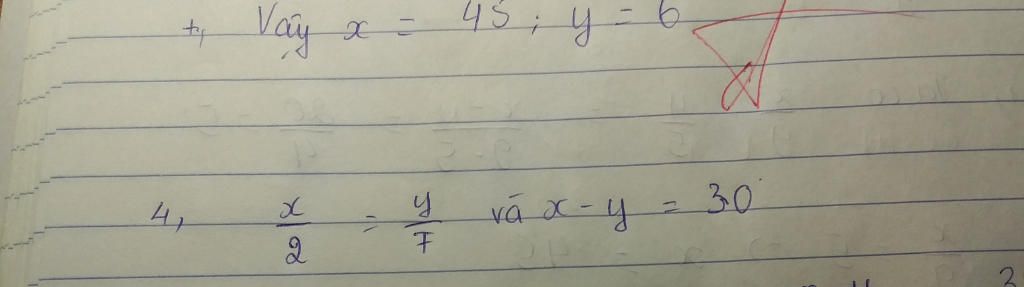 +, Vậy x = 45 ; y = 6
4, x/2 = y/7 và x - y = 30